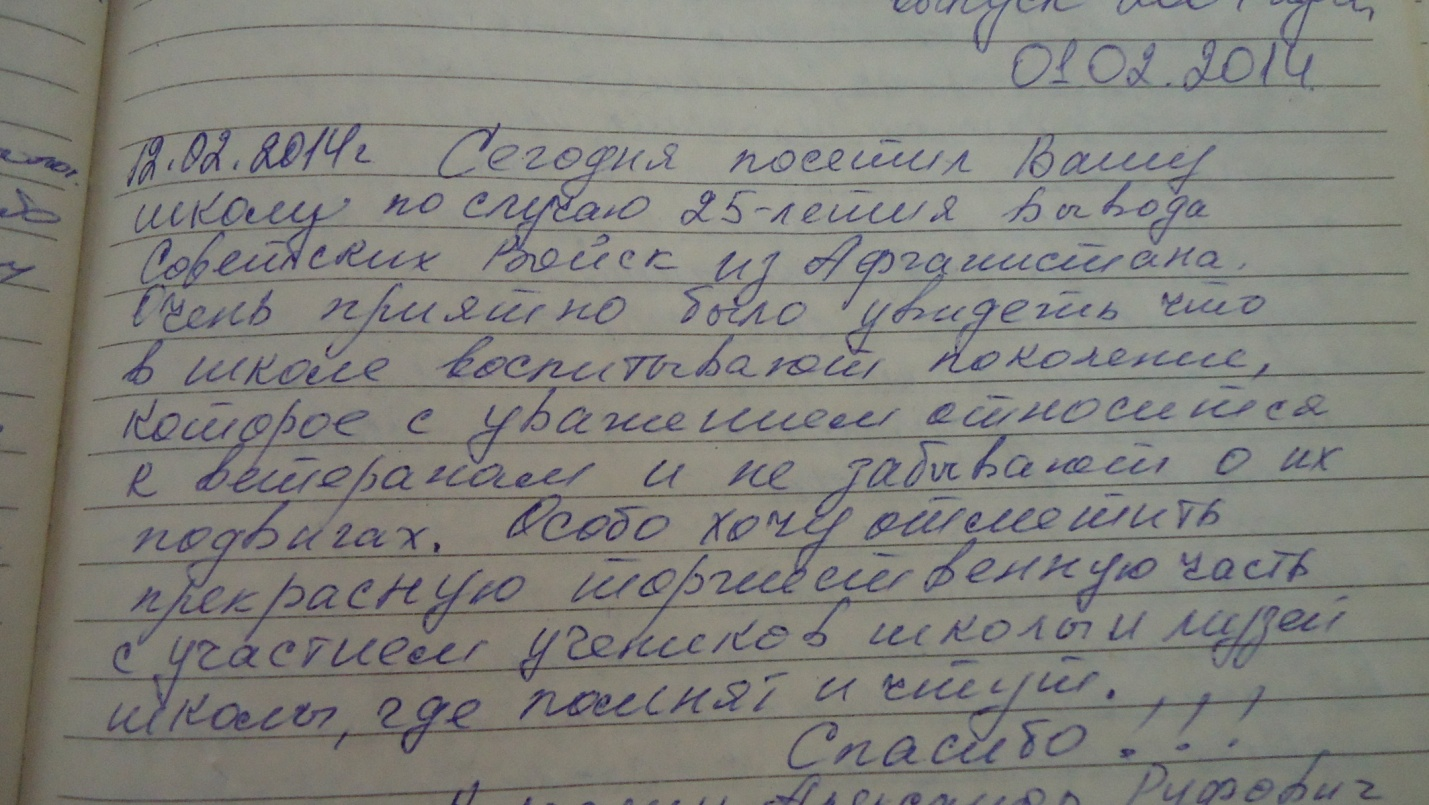 выпуск
01.02.2014
12.02.2014г Сегодня посетил Вашу
школу по случаю 25-летия вывода
Советских Войск из Афганистана.
Очень приятно было увидеть что
в школе воспитывают поколение,
которое с уважением относится
к ветеранам и не забывают о их
подвигах. Особо хочу отметить
прекрасную торжественную часть
с участием учеников школы и музей
школы, где помнят и чтут.
Спасибо!!!
Александр Руфович